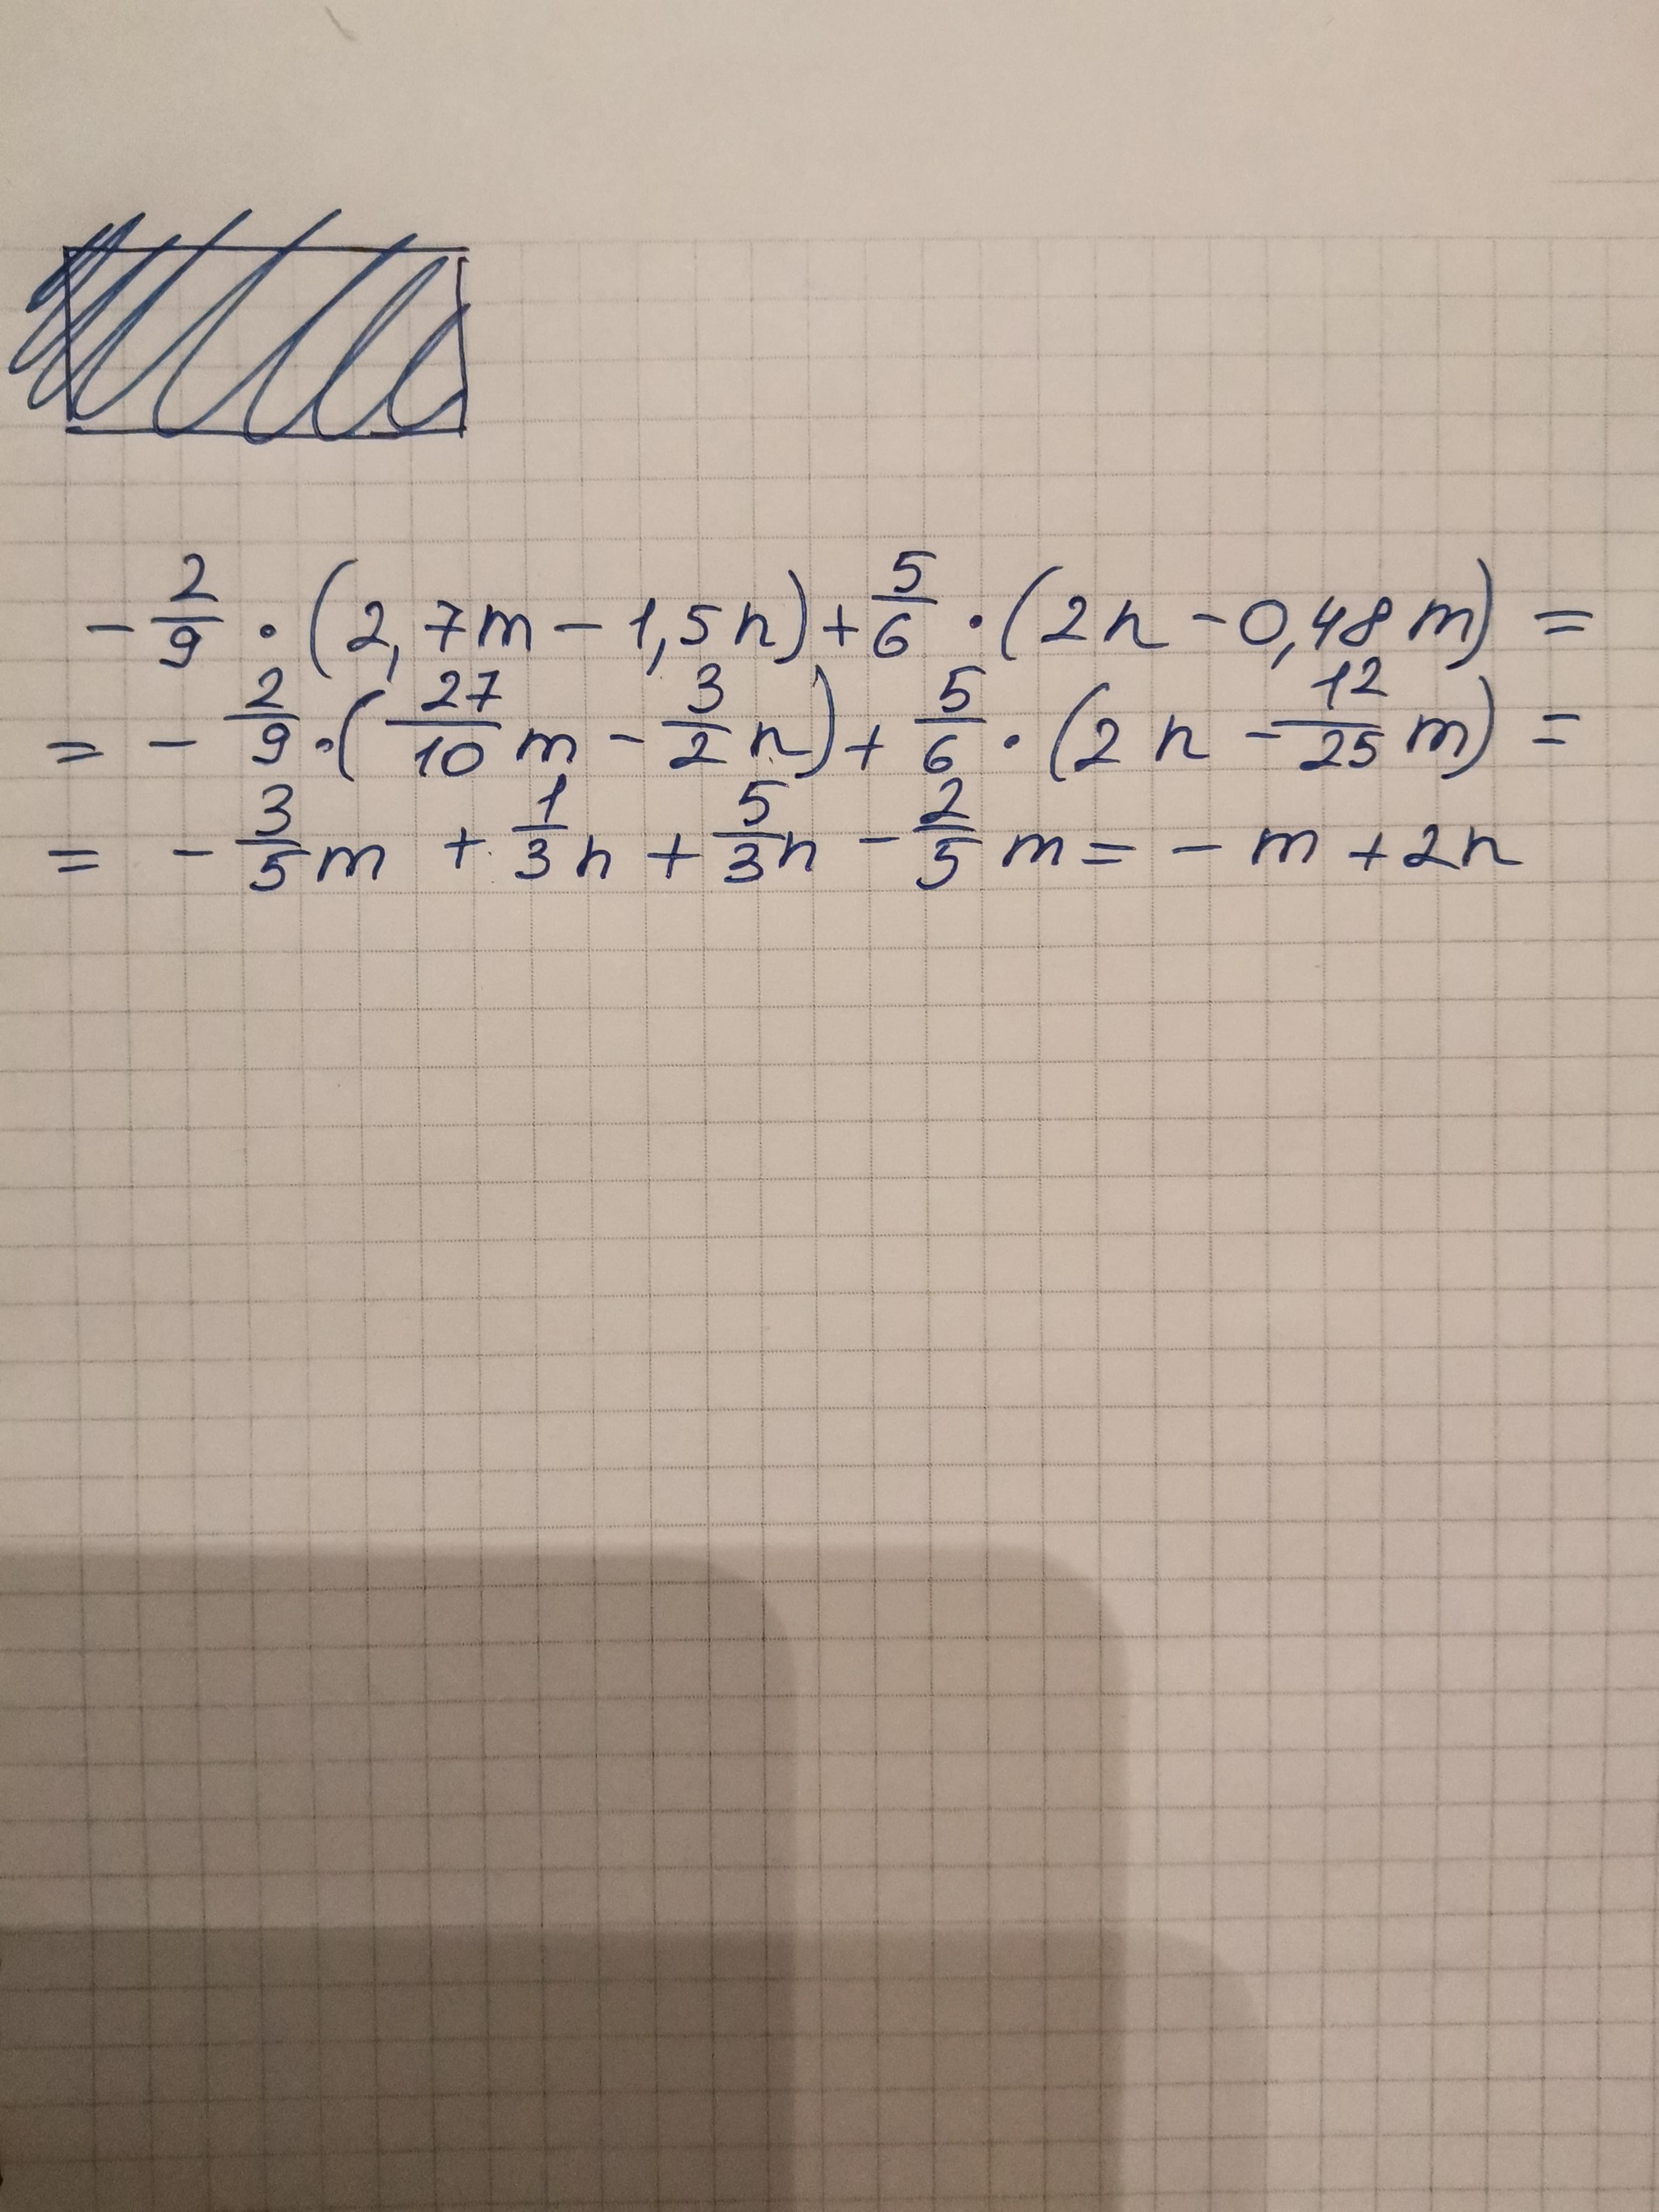 - 2/9 · (2,7m - 1,5n) + 5/6 · (2n - 0,48m) =
= - 2/9 · (27/10 m - 3/2 n) + 5/6 · (2n - 12/25 m) =
= - 3/5 m + 1/3 n + 5/3 n - 2/5 m = - m + 2n